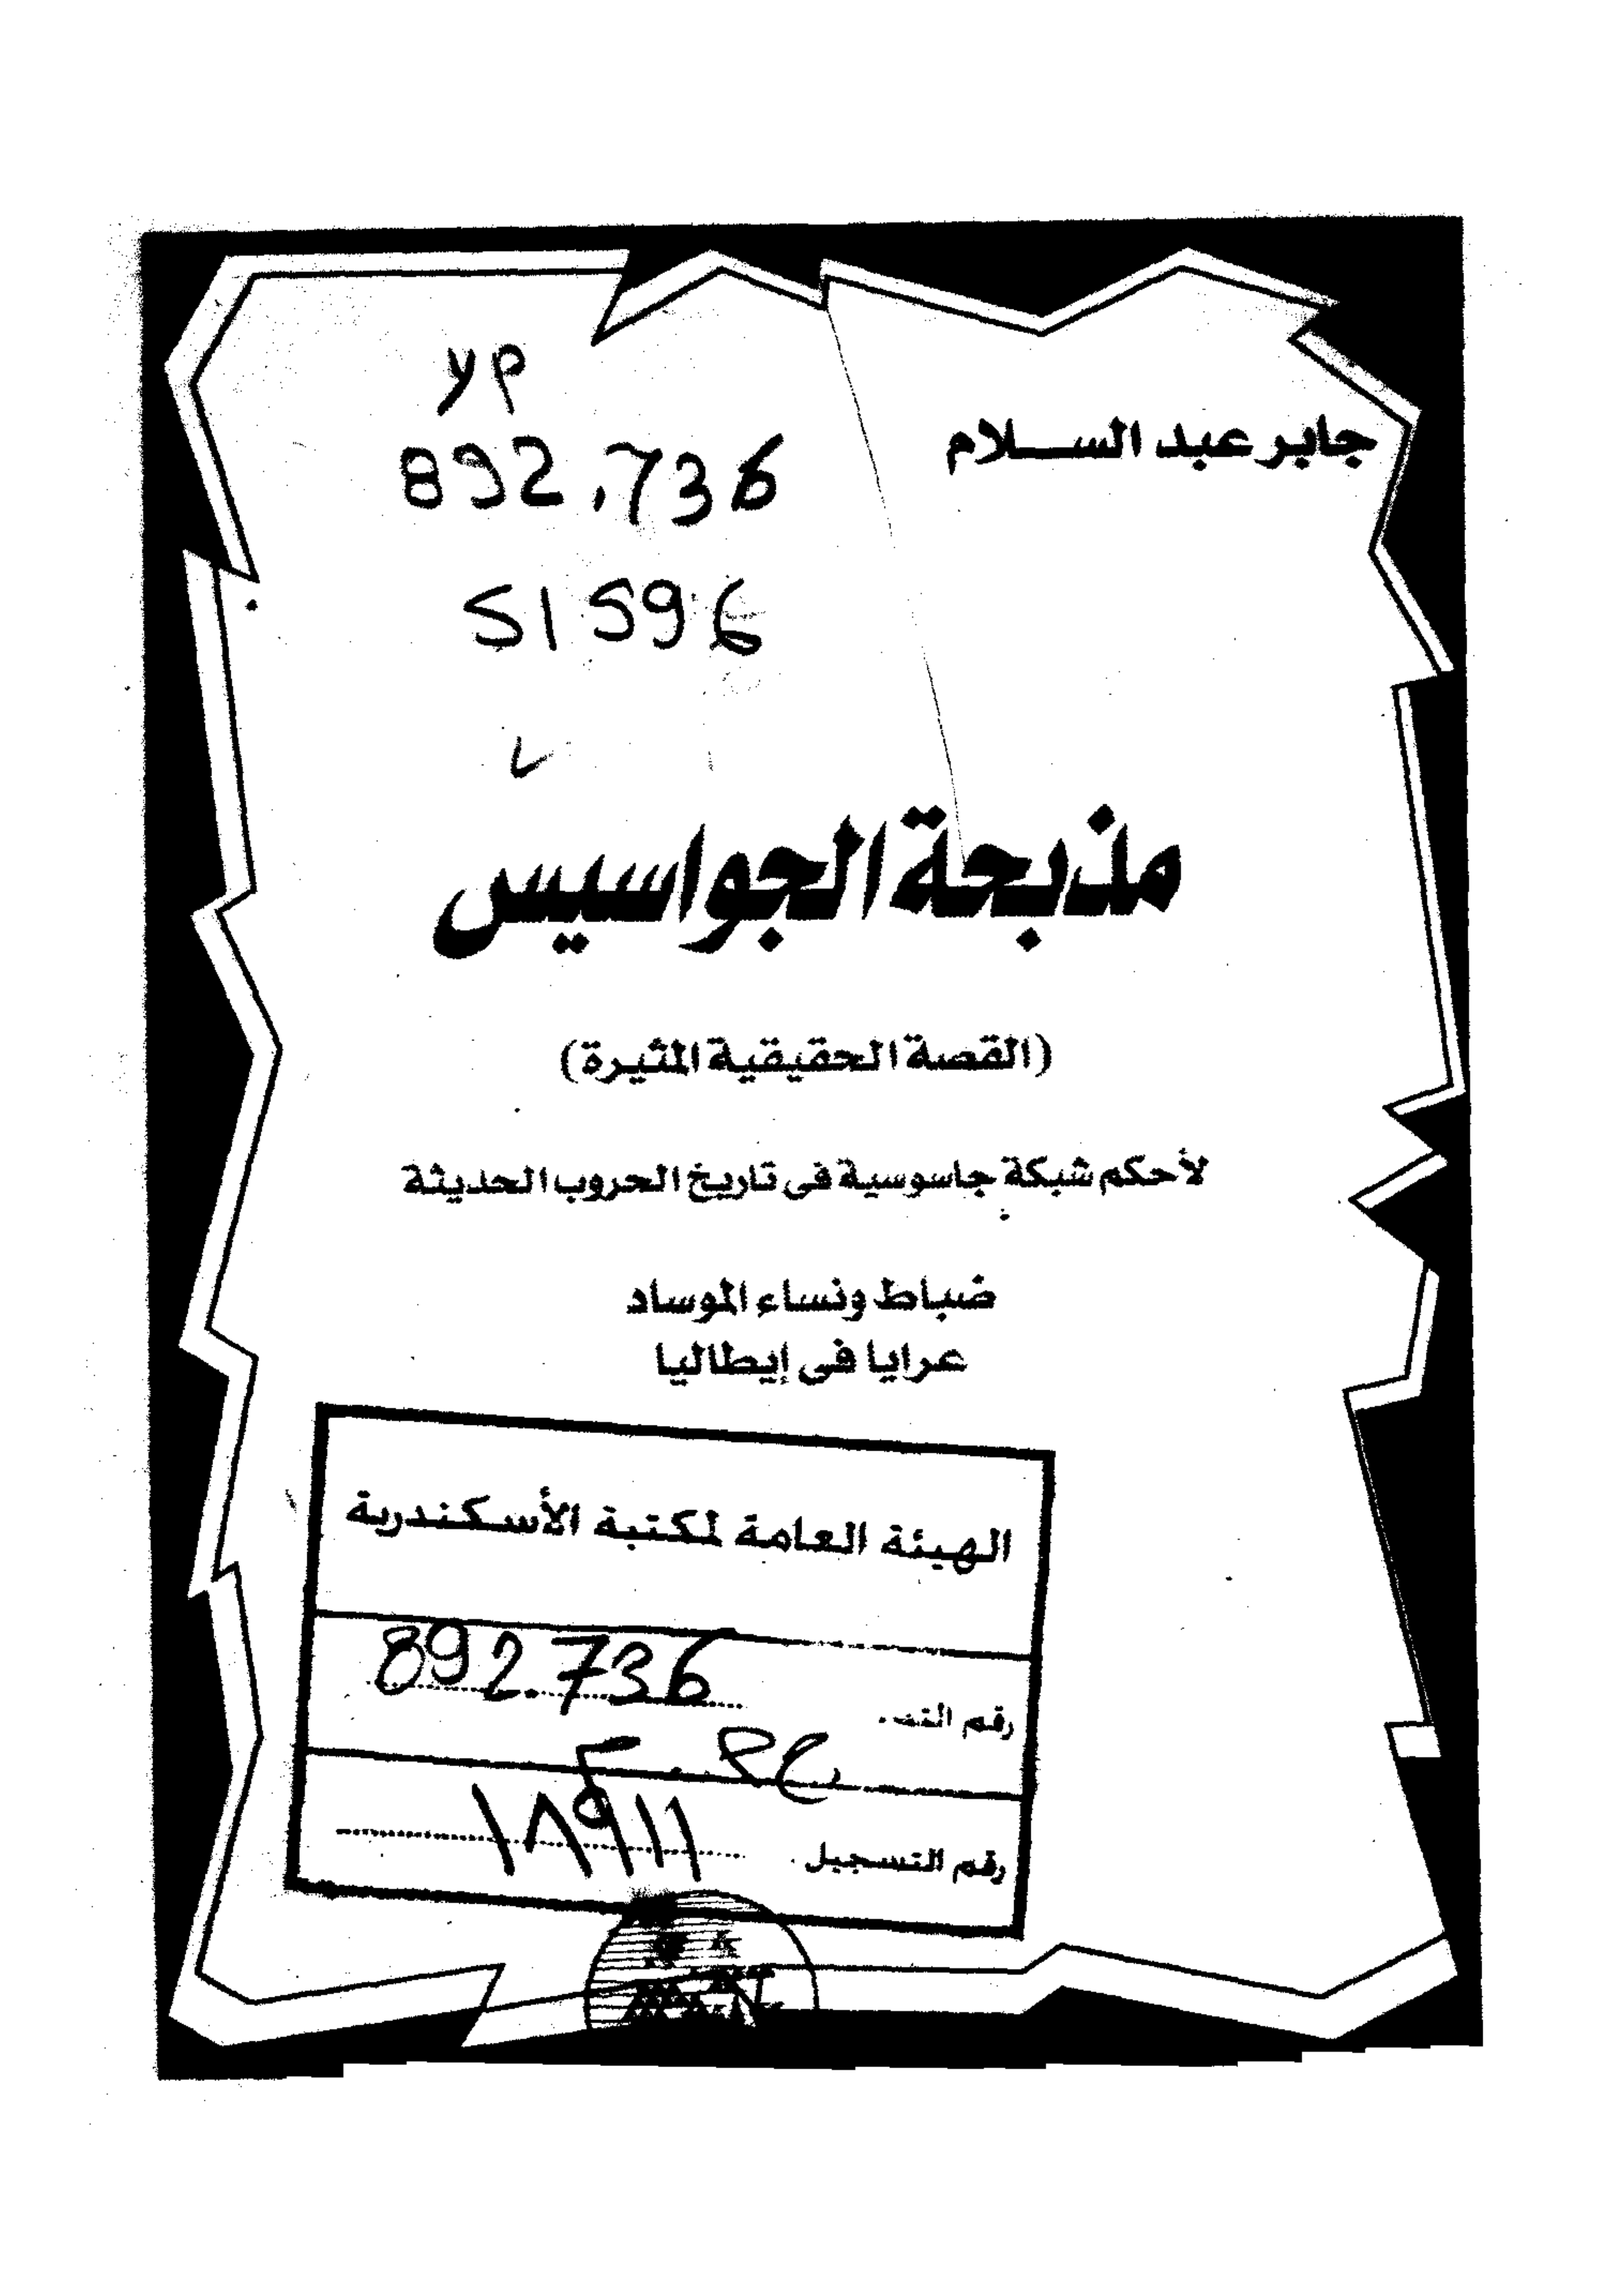 جابر عبد السلام
892.736
مذبحة الجواسيس
(القصة الحقيقية المثيرة)
لأحكم شبكة جاسوسية فى تاريخ الحروب الحديثة
ضباط ونساء الموساد
عرايا فى إيطاليا
الهيئة العامة لمكتبة الأسكندرية
رقم 892.736
رقم التسجيل ١٨٩١١